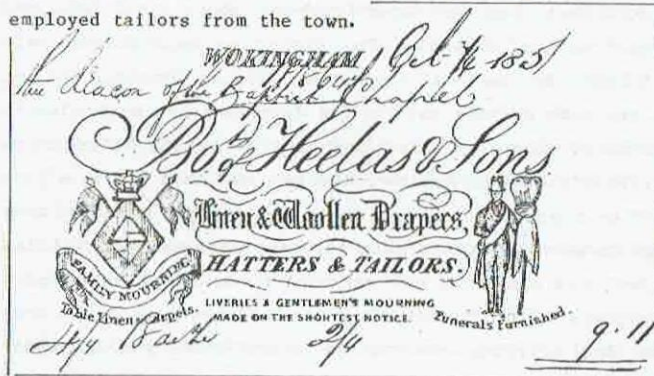 employed tailors from the town.
WOKINGHAM Oct 1851
the Deacon of the Baptist Chapel
Bot. of Heelas & Sons
Linen & Woollen Drapers,
HATTERS & TAILORS.
FAMILY MOURNING
Table Linen & Carpets.
LIVERIES & GENTLEMEN'S MOURNING
MADE ON THE SHORTEST NOTICE.
Funerals Furnished.
4/4 2/4 9.11